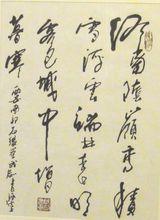 終南陰嶺秀積
雪浮雲端林表明
霽色城中增
暮寒